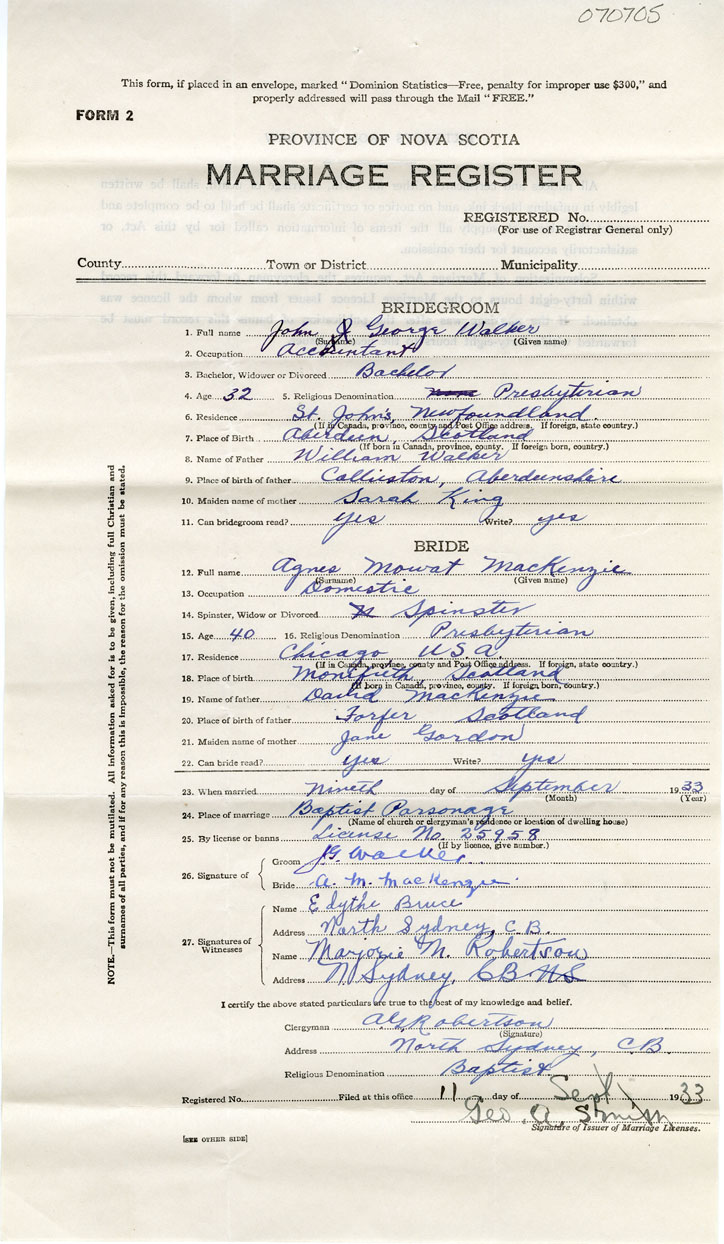 070705
This form, if placed in an envelope, marked "Dominion Statistics—Free, penalty for improper use $300," and
properly addressed will pass through the Mail "FREE."
FORM 2
PROVINCE OF NOVA SCOTIA
MARRIAGE REGISTER
REGISTERED No.
(For use of Registrar General only)
County Town or District Municipality
BRIDEGROOM
1. Full name John George Walker
(Surname) (Given name)
2. Occupation Accountant
3. Bachelor, Widower or Divorced Bachelor
4. Age 32 5. Religious Denomination Presbyterian
6. Residence St. John's, Newfoundland.
(If in Canada, province, county and Post Office address. If foreign, state country.)
7. Place of Birth Aberdeen, Scotland
(If born in Canada, province, county. If foreign born, country.)
8. Name of Father William Walker
9. Place of birth of father Collieston, Aberdeenshire
10. Maiden name of mother Sarah King
11. Can bridegroom read? yes Write? yes
BRIDE
12. Full name Agnes Mowat MacKenzie
(Surname) (Given name)
13. Occupation Domestic
14. Spinster, Widow or Divorced Spinster
15. Age 40 16. Religious Denomination Presbyterian
17. Residence Chicago U.S.A.
(If in Canada, province, county and Post Office address. If foreign, state country.)
18. Place of birth Monifieth, Scotland
(If born in Canada, province, county. If foreign, born, country.)
19. Name of father David MacKenzie
20. Place of birth of father Forfer Scotland
21. Maiden name of mother Jane Gordon
22. Can bride read? yes Write? yes
23. When married nineth day of September 1933
(Month) (Year)
24. Place of marriage Baptist Parsonage
(Name of church or clergyman's residence or location of dwelling house)
25. By license or banns License No. 25958
(If by licence, give number.)
26. Signature of
Groom J.G. Walker
Bride A. M. MacKenzie
27. Signatures of Witnesses
Name Edythe Bruce
Address North Sydney, C.B.
Name Marjorie M. Robertson
Address N Sydney, CB NS
I certify the above stated particulars are true to the best of my knowledge and belief.
Clergyman Robertson
(Signature)
Address North Sydney, C.B.
Religious Denomination Baptist
Registered No. Filed at this office 11 day of Sept 1933
Geo. A. Smith
Signature of Issuer of Marriage Licenses.
[SEE OTHER SIDE]
NOTE.—This form must not be mutilated. All information asked for is to be given, including full Christian and
surnames of all parties, and if for any reason this is impossible, the reason for the omission must be stated.